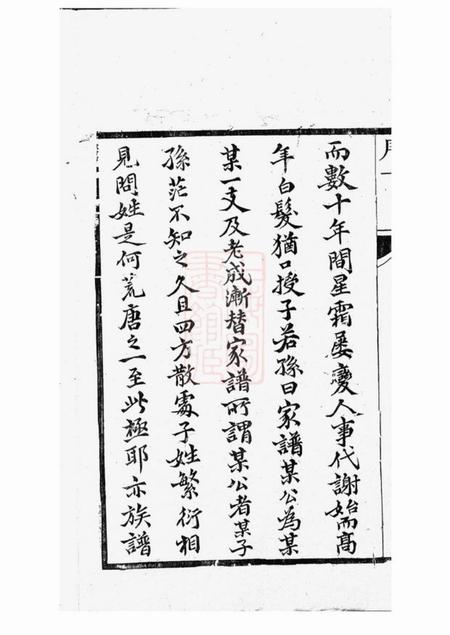 而數十年間星霜屢變人事代謝始而高
年白髮猶口授子若孫曰家譜某公為某
某一支及老成漸替家譜所謂某公者某子
孫茫不知之久且四方散處子姓繁衍相
見問姓是何荒唐之一至此極耶亦族譜